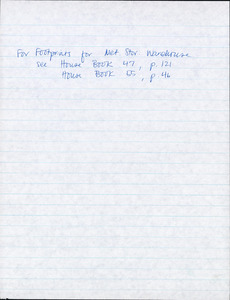 For Footprints for Net Stor Warehouse
see House Book 47, p. 121
House Book 65, p 46